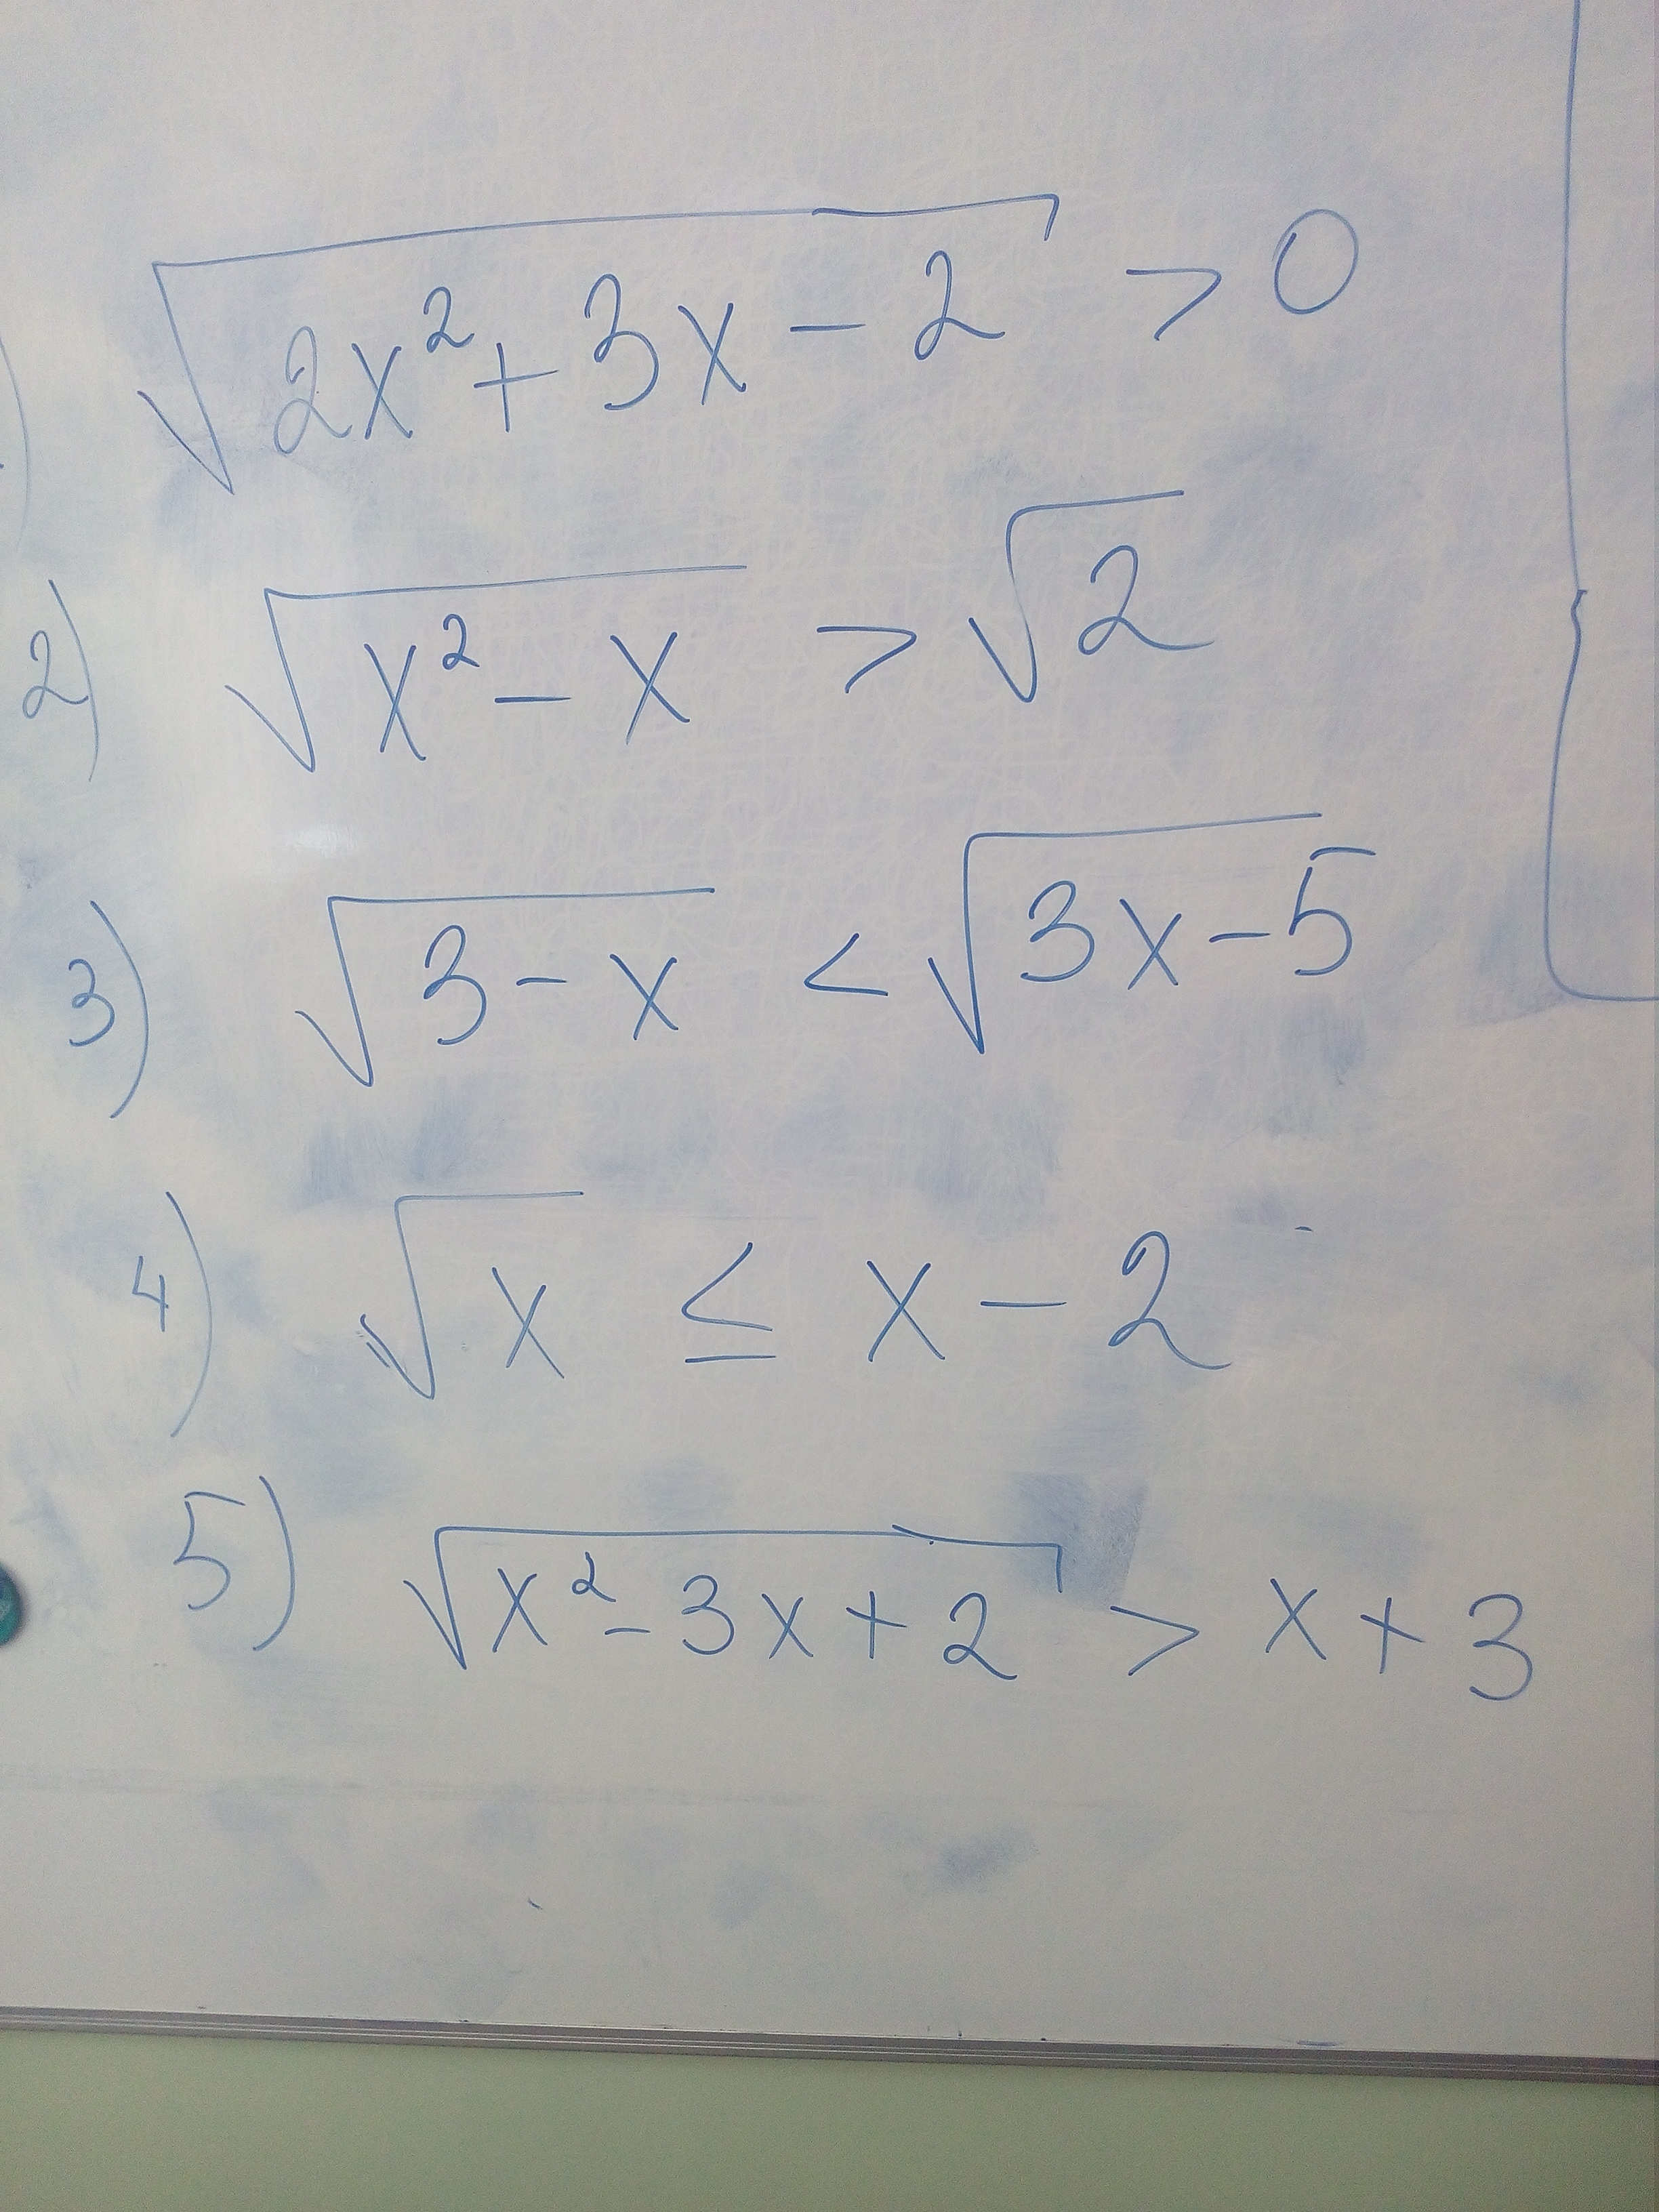 ) √(2x²+3x-2) > 0
2) √(x²-x) > √2
3) √(3-x) < √(3x-5)
4) √x ≤ x-2
5) √(x²-3x+2) > x+3